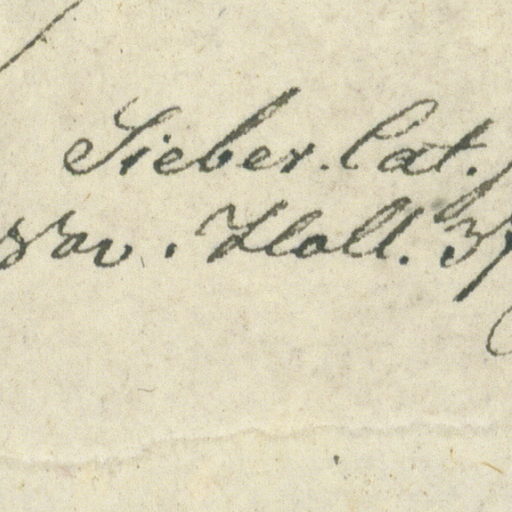 Sieber. Cat.
Nov. Holl. 37